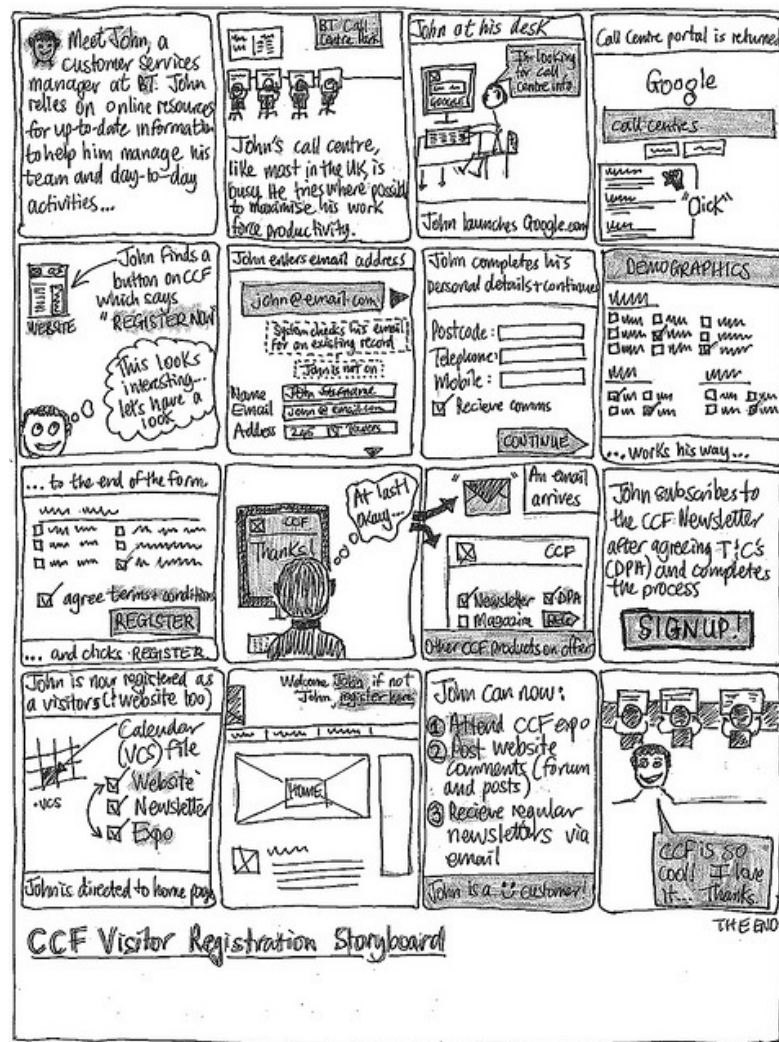 Meet John, a
customer services
manager at BT. John
relies on online resources
for up-to-date information
to help him manage his
team and day-to-day
activities...
BT Call
Centre Park
John's call centre,
like most in the UK, is
busy. He tries where possible
to maximise his work
force productivity.
John at his desk
I'm looking
for call
centre info
GOOGLE
John launches Google.com
Call Centre portal is returned
Google
call centres
"Click"
John finds a
button on CCF
which says
"REGISTER NOW"
WEBSITE
This looks
interesting...
let's have a
look
John enters email address
john@email.com
System checks his email
for an existing record
John is not on
Name
Email john@email.com
Address
John completes his
personal details + continues
Postcode:
Telephone:
Mobile:
Recieve comms
CONTINUE
DEMOGRAPHICS
...works his way...
... to the end of the form.
agree terms + conditions
REGISTER
... and clicks REGISTER
CCF
Thanks!
At last!
okay...
An email
arrives
CCF
Newsletter DPA
Magazine
Other CCF products on offer
John subscribes to
the CCF Newsletter
after agreeing T&C's
(DPA) and completes
the process
SIGNUP!
John is now registered as
a visitors (+ website too)
Calendar
(VCS) file
.vcs
Website
Newsletter
Expo
John is directed to home page
Welcome John if not
John, register here
HOME
John can now:
1 Attend CCF expo
2 Post website
comments (forum
and posts)
3 Recieve regular
newsletters via
email
John is a customer!
CCF is so
cool! I love
it... Thanks.
THE END
CCF Visitor Registration Storyboard